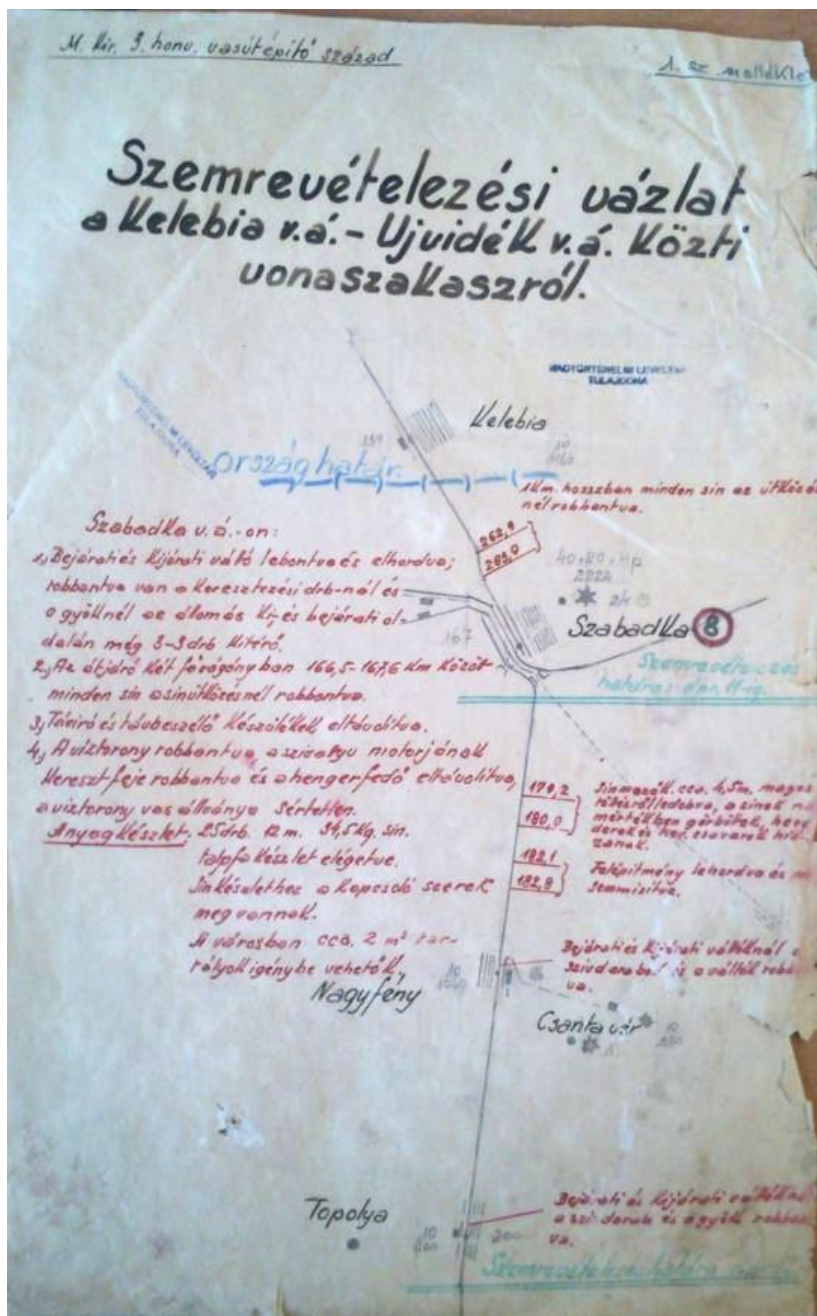 M. Kir. 3. honv. vasútépitő század
1. sz. mellékle
Szemrevételezési vázlat
a Kelebia v.á. - Ujvidék v.á. közti
vonaszakaszról.
HADTÖRTÉNELMI LEVÉLTÁR
TULAJDONA
HADTÖRTÉNELMI LEVÉLTÁR
TULAJDONA
Kelebia
Országhatár.
1Km. hosszban minden sin az ütközés
nél robbantva.
262,9
263,0
Szabadka v.á.-on:
1, Bejárati és Kijárati váltó lebontva és elhordva;
robbantva van a Keresztezési drb-nál és
a gyöknél az állomás Ki, és bejárati ol-
dalán még 3-3 drb Kitérő.
2, Az átjáró két fővágányban 166,5-167,6 Km között
minden sin a sinütközésnél robbantva.
3, Táviró és távbeszélő Készülékek eltávolítva.
4, A víztorony robbantva, a szivattyu motorjának
Kereszt feje robbantva és a hengerfedő eltávolítva,
a víztorony vas állványa sértetlen.
Anyagkészlet: 25 drb. 12 m. 34,5 Kg. sin.
talpfa készlet elégetve.
Sinkészlethez a Kapcsoló szerek
meg vannak.
A városban cca. 2 m³ tar-
tályok igénybe vehetők.
40, 20, Hp
24
167
Szabadka 8
Szemrevételezés
határa: ápr. 11-ig.
179,2
180,0
Sinmezők cca. 4,5m. magas
töltésről ledobva, a sinek
mértékben görbültek,
csavarok
zanak.
182,1
182,8
Felépítmény lehordva és
semmisítve.
Bejárati és Kijárati váltóknál
szívdarabok és a váltók robb
va.
Nagyfény
10
Csantavér
10
Topolya
10
200
Bejárati és Kijárati váltókná
a szívdarab és a gyök robban
va.
Szemrevételezés határa